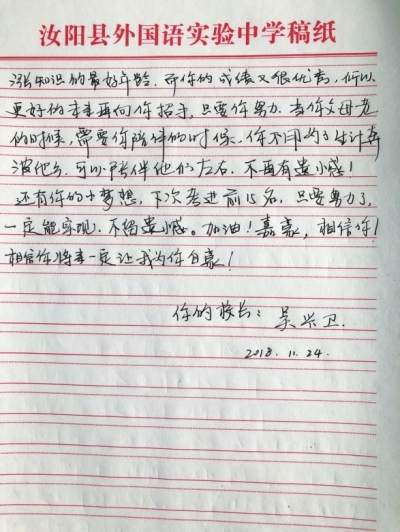 汝阳县外国语实验中学稿纸
涨知识的最好年龄，而你的成绩又很优秀，所以
更好的未来再向你招手，只要你努力，当你父母老
的时候，需要你陪伴的时候，你不用为了生计奔
波他乡，可以陪伴他们左右，不再有遗憾！
还有你的小梦想，下次考进前15名，只要努力了，
一定能实现，不留遗憾。加油！嘉豪，相信你！
相信你将来一定让我为你自豪！
你的校长：吴兴卫
2018.11.24.